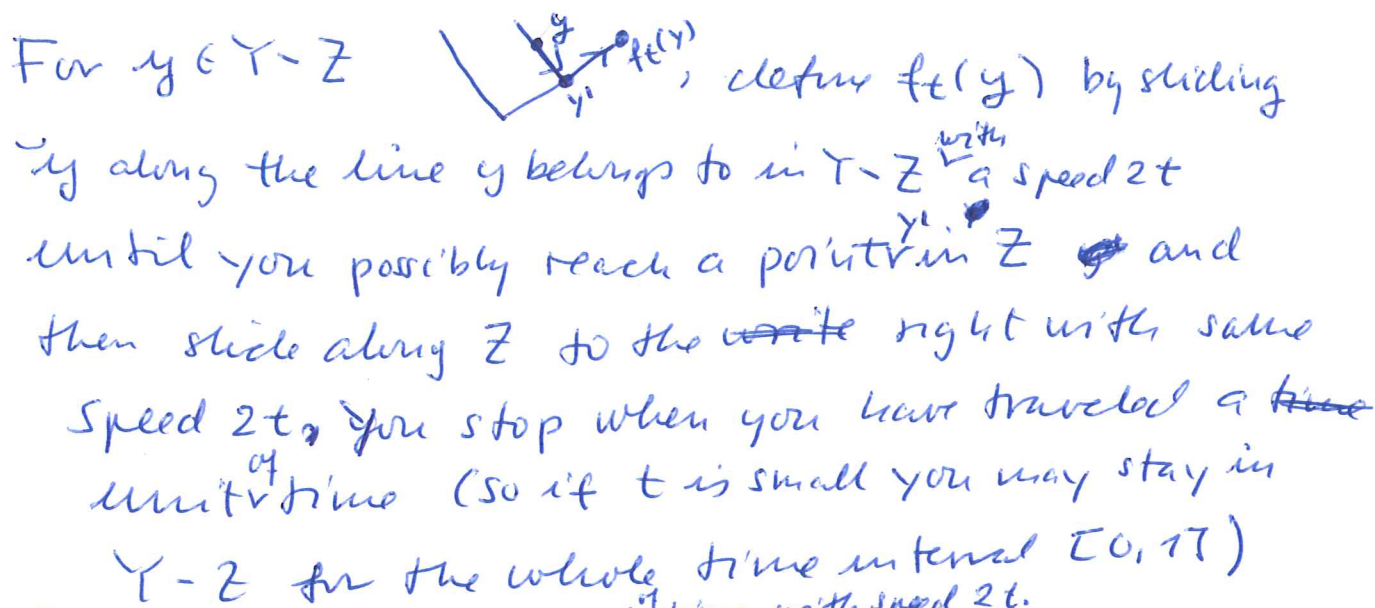 For y ∈ Y - Z y y' f_t(y), define f_t(y) by sliding
y along the line y belongs to in Y - Z with a speed 2t
until you possibly reach a point y' in Z and
then slide along Z to the right with same
speed 2t. You stop when you have traveled a
unit of time (so if t is small you may stay in
Y - Z for the whole time interval [0, 1])
with speed 2t.